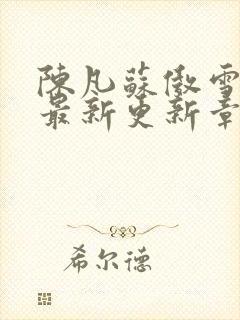 陳凡蘇傲雪
最新更新章
希尔德